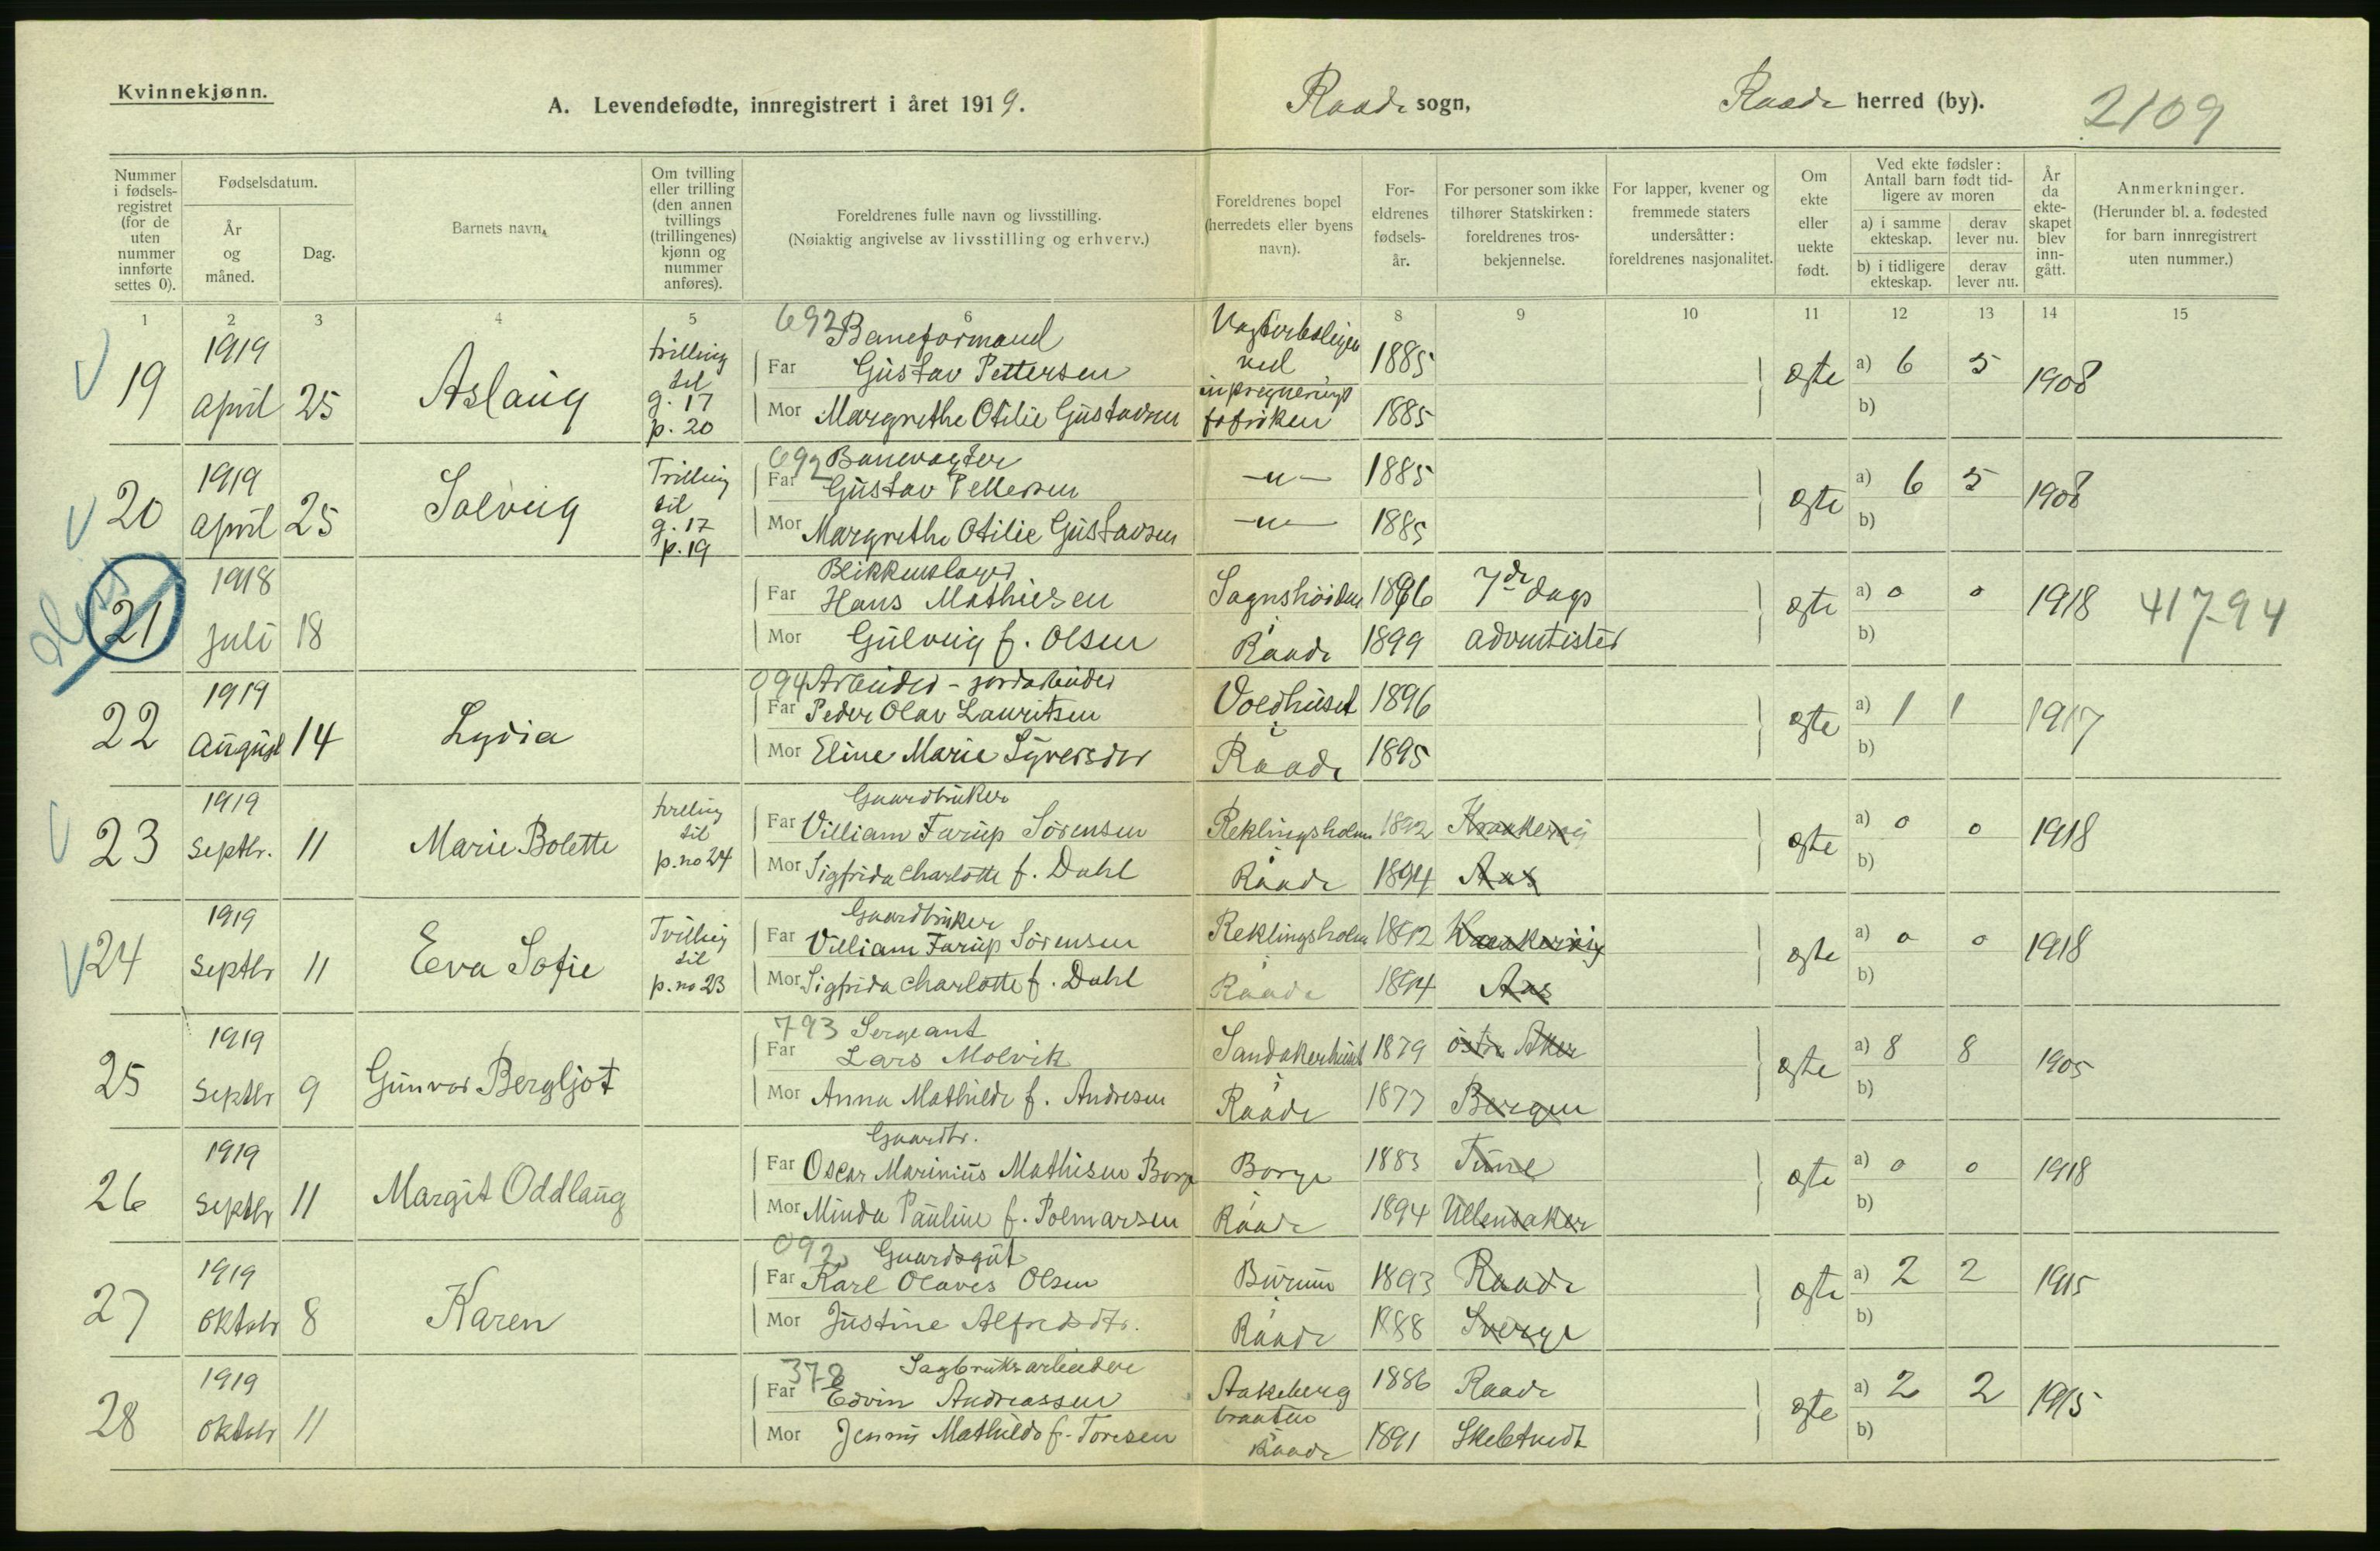 Kvinnekjønn.
A. Levendefødte, innregistrert i året 1919.
Raade sogn,
Raade herred (by).
2109
Nummer i fødsels-registret (for de uten nummer innførte settes 0).
Fødselsdatum.
År og måned.
Dag.
Barnets navn.
Om tvilling eller trilling (den annen tvillings (trillingenes) kjønn og nummer anføres).
Foreldrenes fulle navn og livsstilling.
(Nøiaktig angivelse av livsstilling og erhverv.)
Foreldrenes bopel (herredets eller byens navn).
For-eldrenes fødsels-år.
For personer som ikke tilhører Statskirken: foreldrenes tros-bekjennelse.
For lapper, kvener og fremmede staters undersåtter: foreldrenes nasjonalitet.
Om ekte eller uekte født.
Ved ekte fødsler: Antall barn født tid-ligere av moren
a) i samme ekteskap.
derav lever nu.
b) i tidligere ekteskap.
derav lever nu.
År da ekte-skapet blev inn-gått.
Anmerkninger.
(Herunder bl. a. fødested for barn innregistrert uten nummer.)
1 2 3 4 5 6 8 9 10 11 12 13 14 15
692 Baneformand
19 1919 april 25 Aslaug trilling til g. 17 p. 20
Far Gustav Pettersen ved 1885 ægte a) 6 5 1908
Mor Margrethe Otilie Gustavsen fabriken 1885 b)
692 Banevagter
20 1919 april 25 Solveig Trilling til g. 17 p. 19
Far Gustav Pettersen -"- 1885 ægte a) 6 5 1908
Mor Margrethe Otilie Gustavsen -"- 1885 b)
Blikkenslager
21 1918 juli 18
Far Hans Mathiesen 1896 7de dags ægte a) 0 0 1918 417-94
Mor Gulveig f. Olsen i Raade 1899 adventister b)
094 Arbeider - jordarbeider
22 1919 august 14 Lydia
Far Peder Olav Lauritsen Voldhuset 1896 ægte a) 1 1 1917
Mor Eline Marie Syversdtr i Raade 1895 b)
Gaardbruker
23 1919 Septbr. 11 Marie Bolette tvilling til p. no 24
Far Villiam Farup Sörensen Reklingsholm 1892 Kraakeröy ægte a) 0 0 1918
Mor Sigfrida Charlotte f. Dahl i Raade 1894 Aas b)
Gaardbruker
24 1919 Septbr 11 Eva Sofie Tvilling til p. no 23
Far Villiam Farup Sörensen Reklingsholm 1892 Kraakeröy ægte a) 0 0 1918
Mor Sigfrida Charlotte f. Dahl i Raade 1894 Aas b)
793 Sergeant
25 1919 Septbr 9 Gunvor Bergljot
Far Lars Molvik Sandakerhuset 1879 östre Aker ægte a) 8 8 1905
Mor Anna Mathilde f. Andresen i Raade 1877 Bergen b)
Gaardbr.
26 1919 Septbr 11 Margit Oddlaug
Far Oscar Marinius Mathisen Borge Borge 1883 Tune ægte a) 0 0 1918
Mor Minda Pauline f. Polmarsen i Raade 1894 Ullensaker b)
092 Gaardsgut
27 1919 oktobr 8 Karen
Far Karl Olaves Olsen 1893 Raade ægte a) 2 2 1915
Mor Justine Alfredsdtr. i Raade 1888 Sverge b)
378 Sagbruksarbeidere
28 1919 oktobr 11
Far Edvin Andreassen Aakeberg braaten 1886 Raade ægte a) 2 2 1915
Mor Jenny Mathilde f. Toresen i Raade 1891 Skebtvedt b)